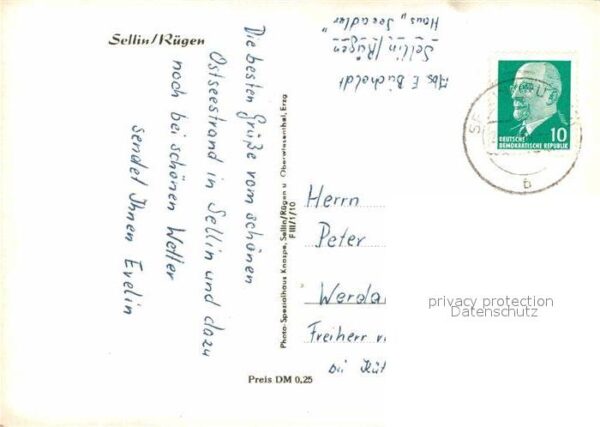 Sellin/Rügen
Die besten Grüße vom schönen
Ostseestrand in Sellin und dazu
noch bei schönen Wetter
sendet Ihnen Evelin
Abs E Bucholdt
Sellin/Rügen
Haus "Seeadler"
DEUTSCHE
DEMOKRATISCHE REPUBLIK
10
b
Photo-Spezialhaus Knospe, Sellin/Rügen u. Oberwiesenthal, Erzg
F III/1/10
Herrn
Peter
Werda
Freiherr v
bei
privacy protection
Datenschutz
Preis DM 0,25